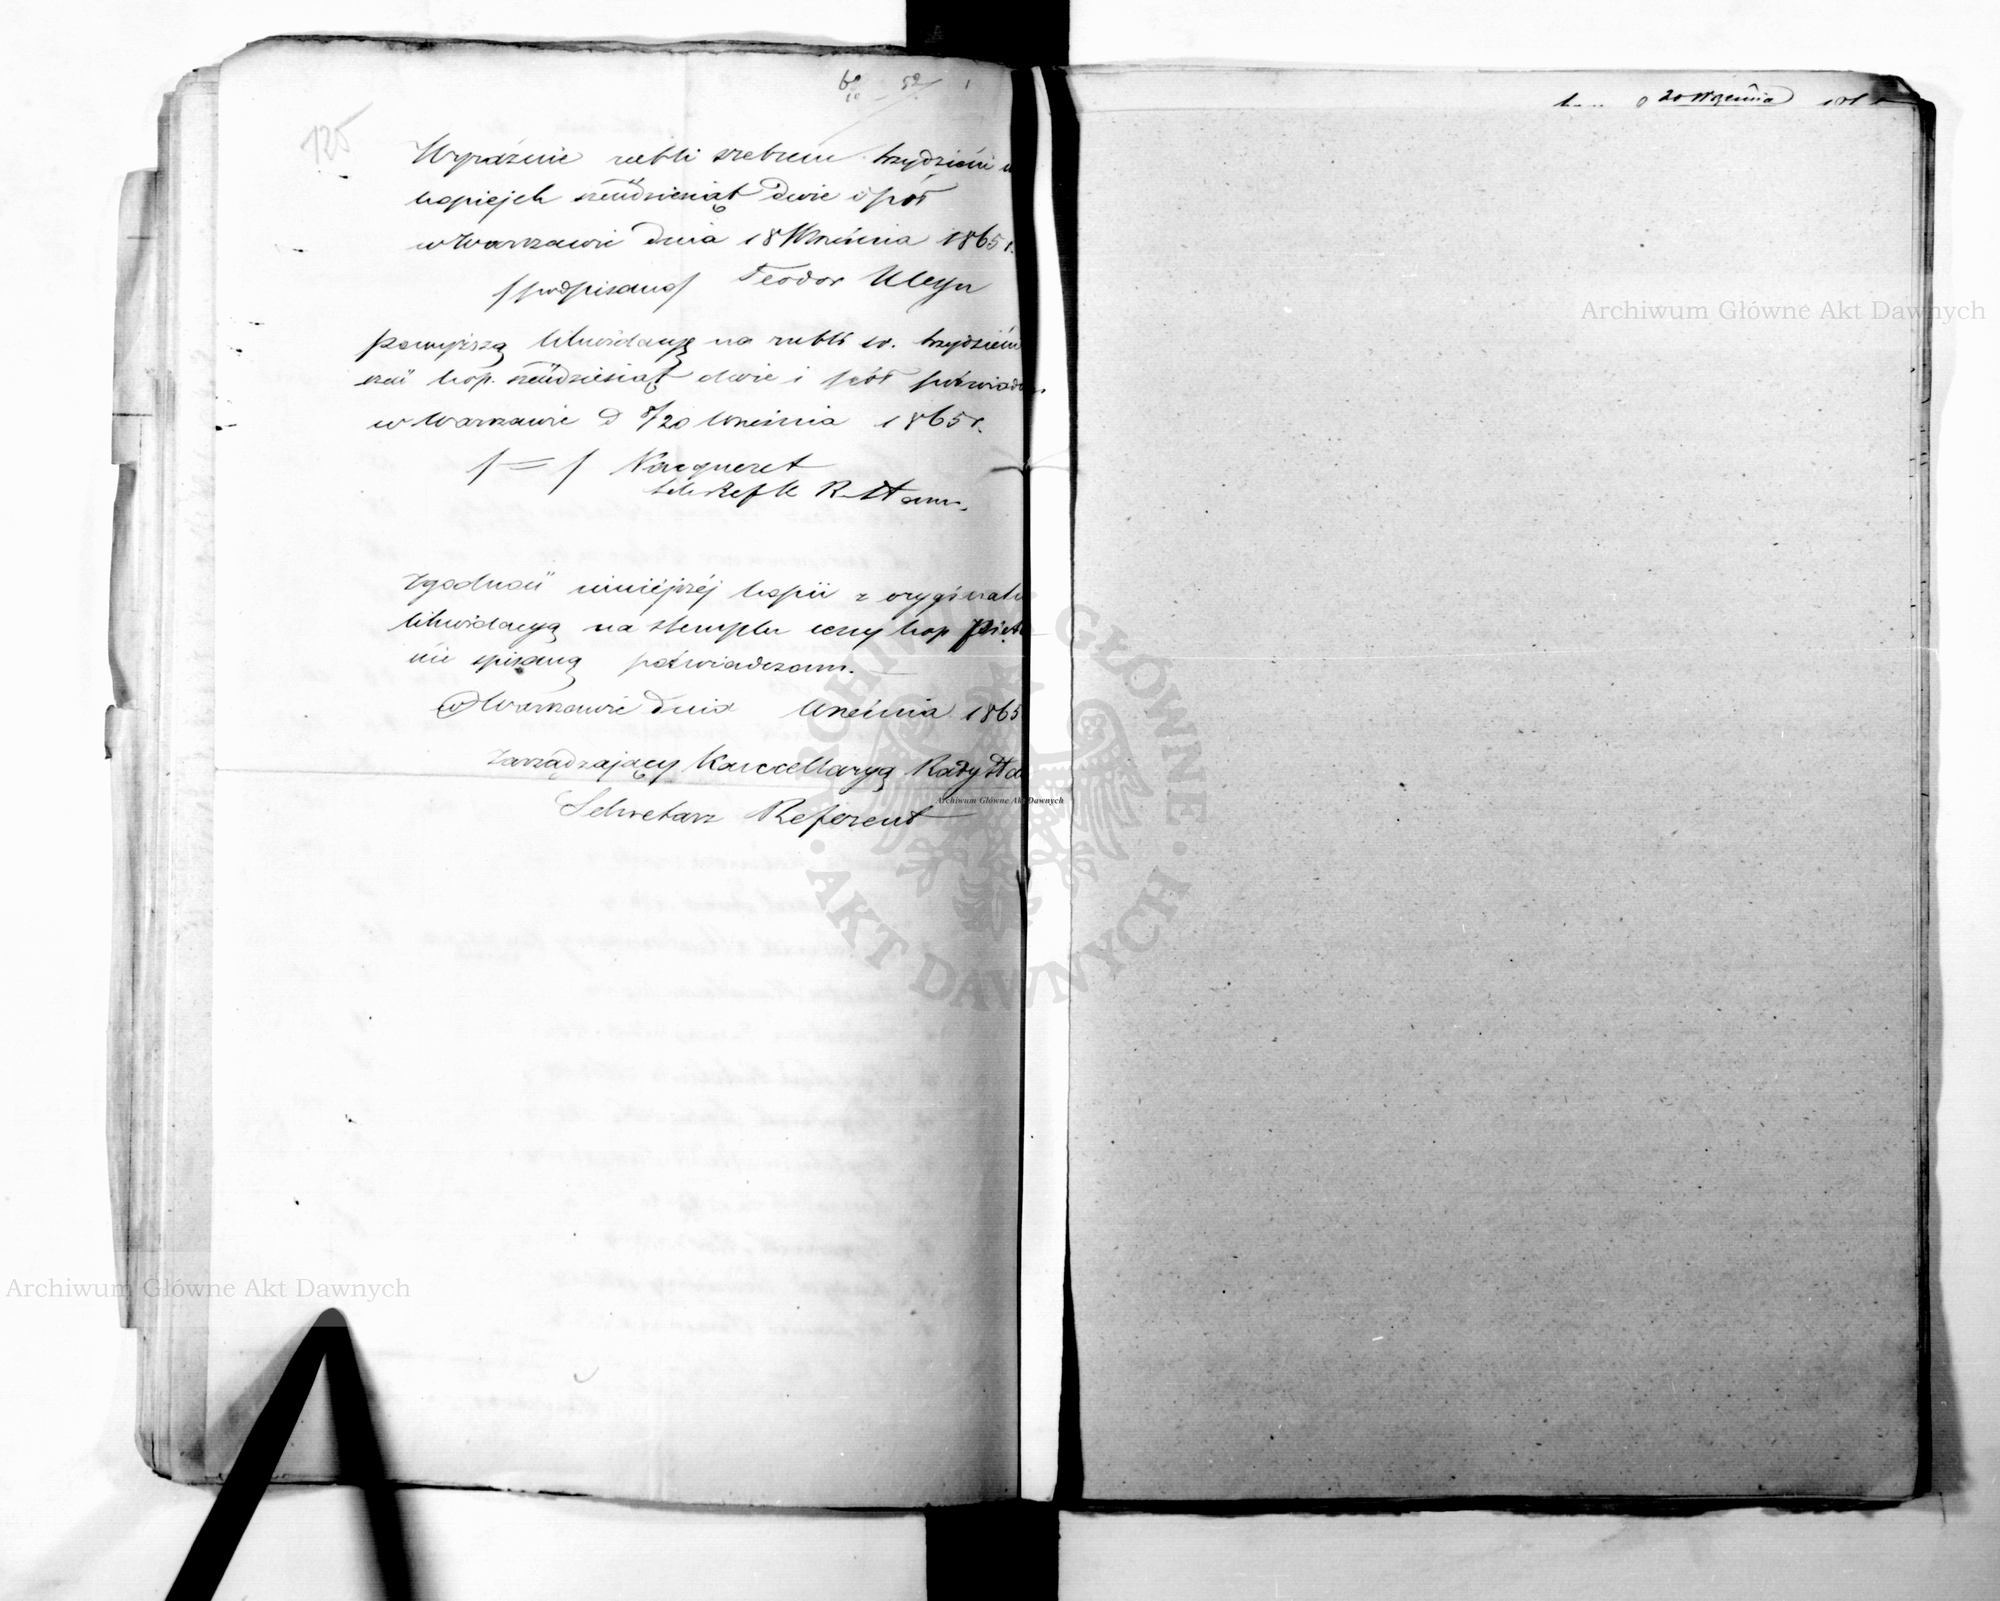 125
Wyraźnie rubli srebrem trzydzieści
kopiejek sześćdziesiąt dwie i pół
w Warszawie dnia 18 Września 1865 r.
/podpisano/ Teodor Kleyn
Powyższą likwidacyę na rubli sr. trzydzieści
sześć kop. sześćdziesiąt dwie i pół poświad
w Warszawie d 8/20 Września 1865 r.
/=/ Vacqueret
Sek Ref K R. Stanu.
Zgodność niniejszéj kopii z oryginalną
likwidacyą na stemplu ceny kop pięt
nie spisaną poświadczam.
w Warszawie dnia Września 1865
Zarządzający Kancellaryą Rady Sta
Sekretarz Referent
20 Września
Archiwum Główne Akt Dawnych
Archiwum Główne Akt Dawnych
Archiwum Główne Akt Dawnych
ARCHIWUM GŁÓWNE
AKT DAWNYCH